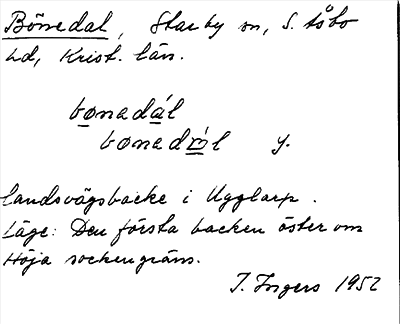 Bönedal, Starby sn, S. Åsbo
hd, Krist. län.
bonadál
bonadról y.
landsvägsbacke i Ugglarp.
Läge: Den första backen öster om
Höja sockengräns.
I. Ingers 1952